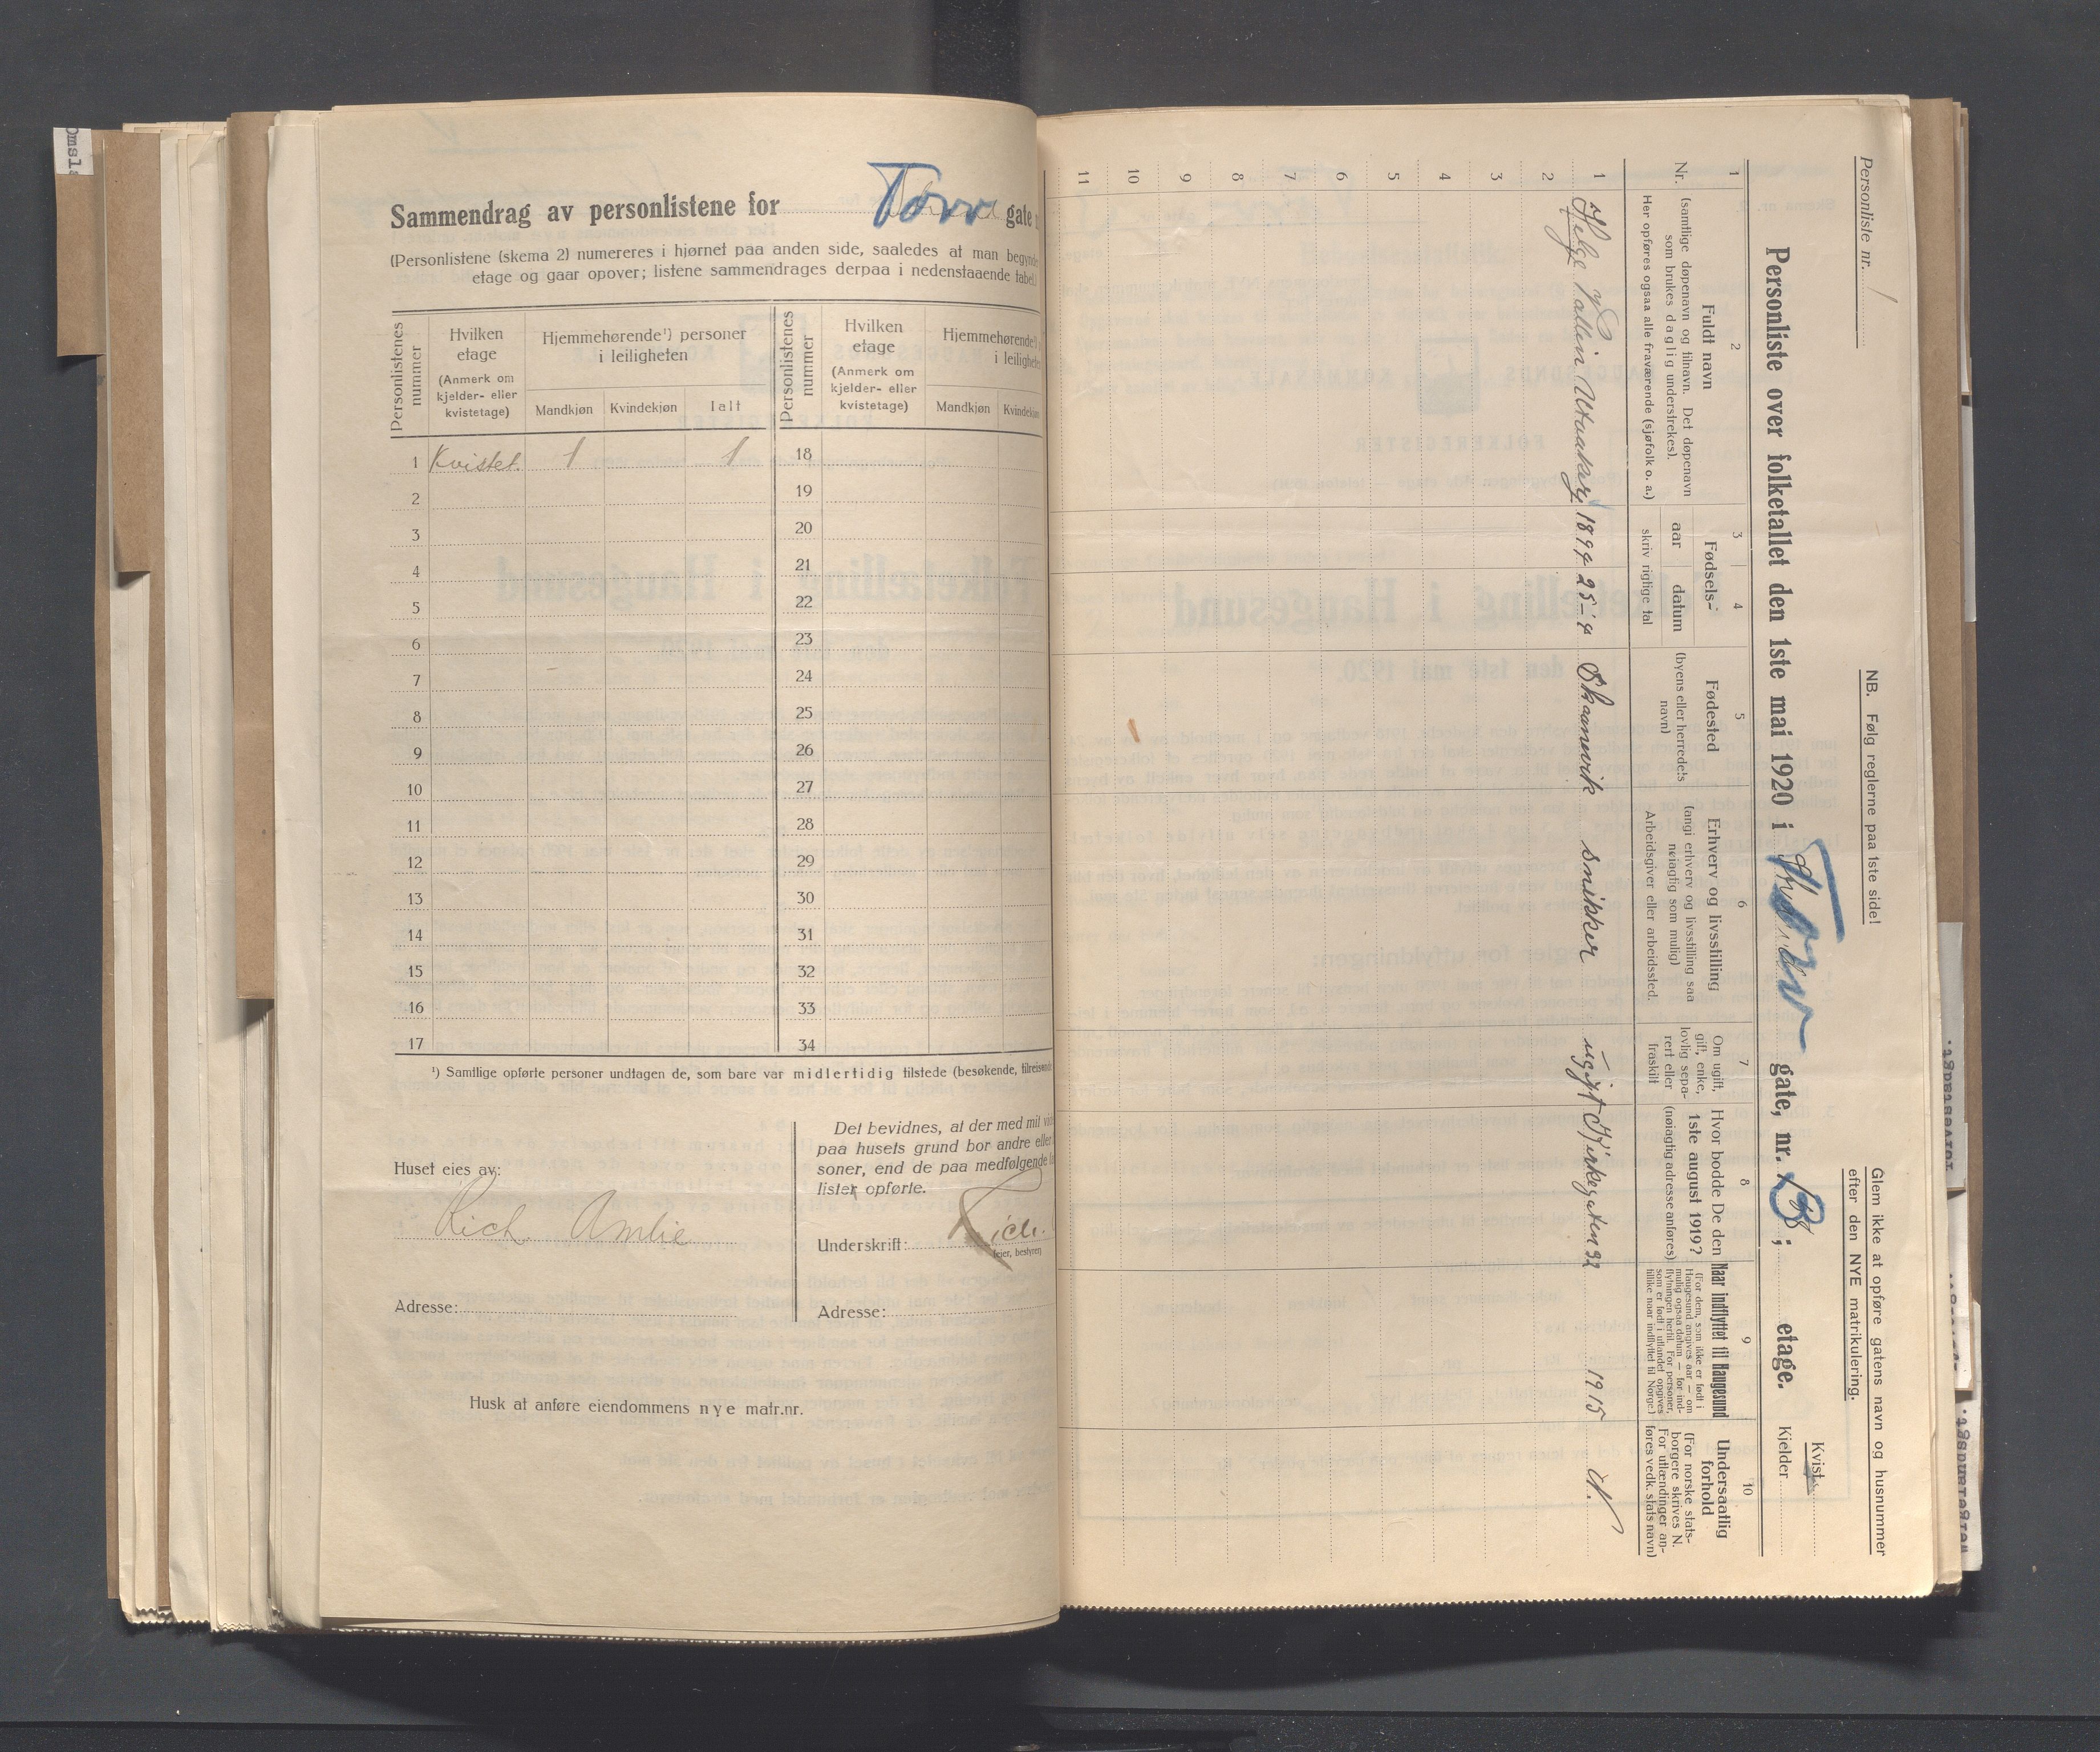 Omsla
Sammendrag av personlistene for Torv gate
(Personlistene (skema 2) numereres i hjørnet paa anden side, saaledes at man begynde
etage og gaar opover; listene sammendrages derpaa i nedenstaaende tabel.)
Personlistenes nummer
Hvilken etage (Anmerk om kjelder- eller kvistetage)
Hjemmehørende¹) personer i leiligheten
Mandkjøn Kvindekjøn Ialt
Personlistenes nummer
Hvilken etage (Anmerk om kjelder- eller kvistetage)
Hjemmehørende¹)
i leilighete
Mandkjøn Kvindekjøn
1 Kvistet 1 1 18
2 19
3 20
4 21
5 22
6 23
7 24
8 25
9 26
10 27
11 28
12 29
13 30
14 31
15 32
16 33
17 34
¹) Samtlige opførte personer undtagen de, som bare var midlertidig tilstede (besøkende, tilreisende
Huset eies av:
Rich. Amlie
Adresse:
Det bevidnes, at der med mit
paa husets grund bor andre eller
soner, end de paa medfølgende
lister opførte.
Underskrift: Rich.
eier, bestyrer
Adresse:
Husk at anføre eiendommens nye matr.nr.
Personliste nr. 1
NB. Følg reglerne paa 1ste side!
Glem ikke at opføre gatens navn og husnummer
efter den NYE matrikulering.
Personliste over folketallet den 1ste mai 1920 i Torv gate, nr. ; etage.
Kvist
Kjelder
1 2 3 4 5 6 7 8 9 10
Nr.
Fuldt navn
(samtlige døpenavn og tilnavn. Det døpenavn
som brukes daglig understrekes).
Her opføres ogsaa alle fraværende (sjøfolk o. a.)
Fødsels-
aar datum
skriv rigtige tal
Fødested
(byens eller herredets
navn)
Erhverv og livsstilling
(angi erhverv og livsstilling saa
nøiagtig som mulig)
Arbeidsgiver eller arbeidssted.
Om ugift,
gift, enke,
lovlig sepa-
rert eller
fraskilt
Hvor bodde De den
1ste august 1919?
(nøiagtig adresse anføres)
Naar indflyttet til Haugesund
(For dem, som ikke er født i
Haugesund angives aar — om
mulig ogsaa datum — for ind-
flytningen hertil. For personer,
som er født i utlandet opgives
tillike naar indflyttet til Norge.)
Undersaatlig
forhold
(For norske stats-
borgere skrives N.
For utlændinger an-
føres vedk. stats navn)
1 Helge Vallin Utvaaker 1894 25-4 Skaanevik snikker ugift Kirkegaten 92 1915 N.
2
3
4
5
6
7
8
9
10
11